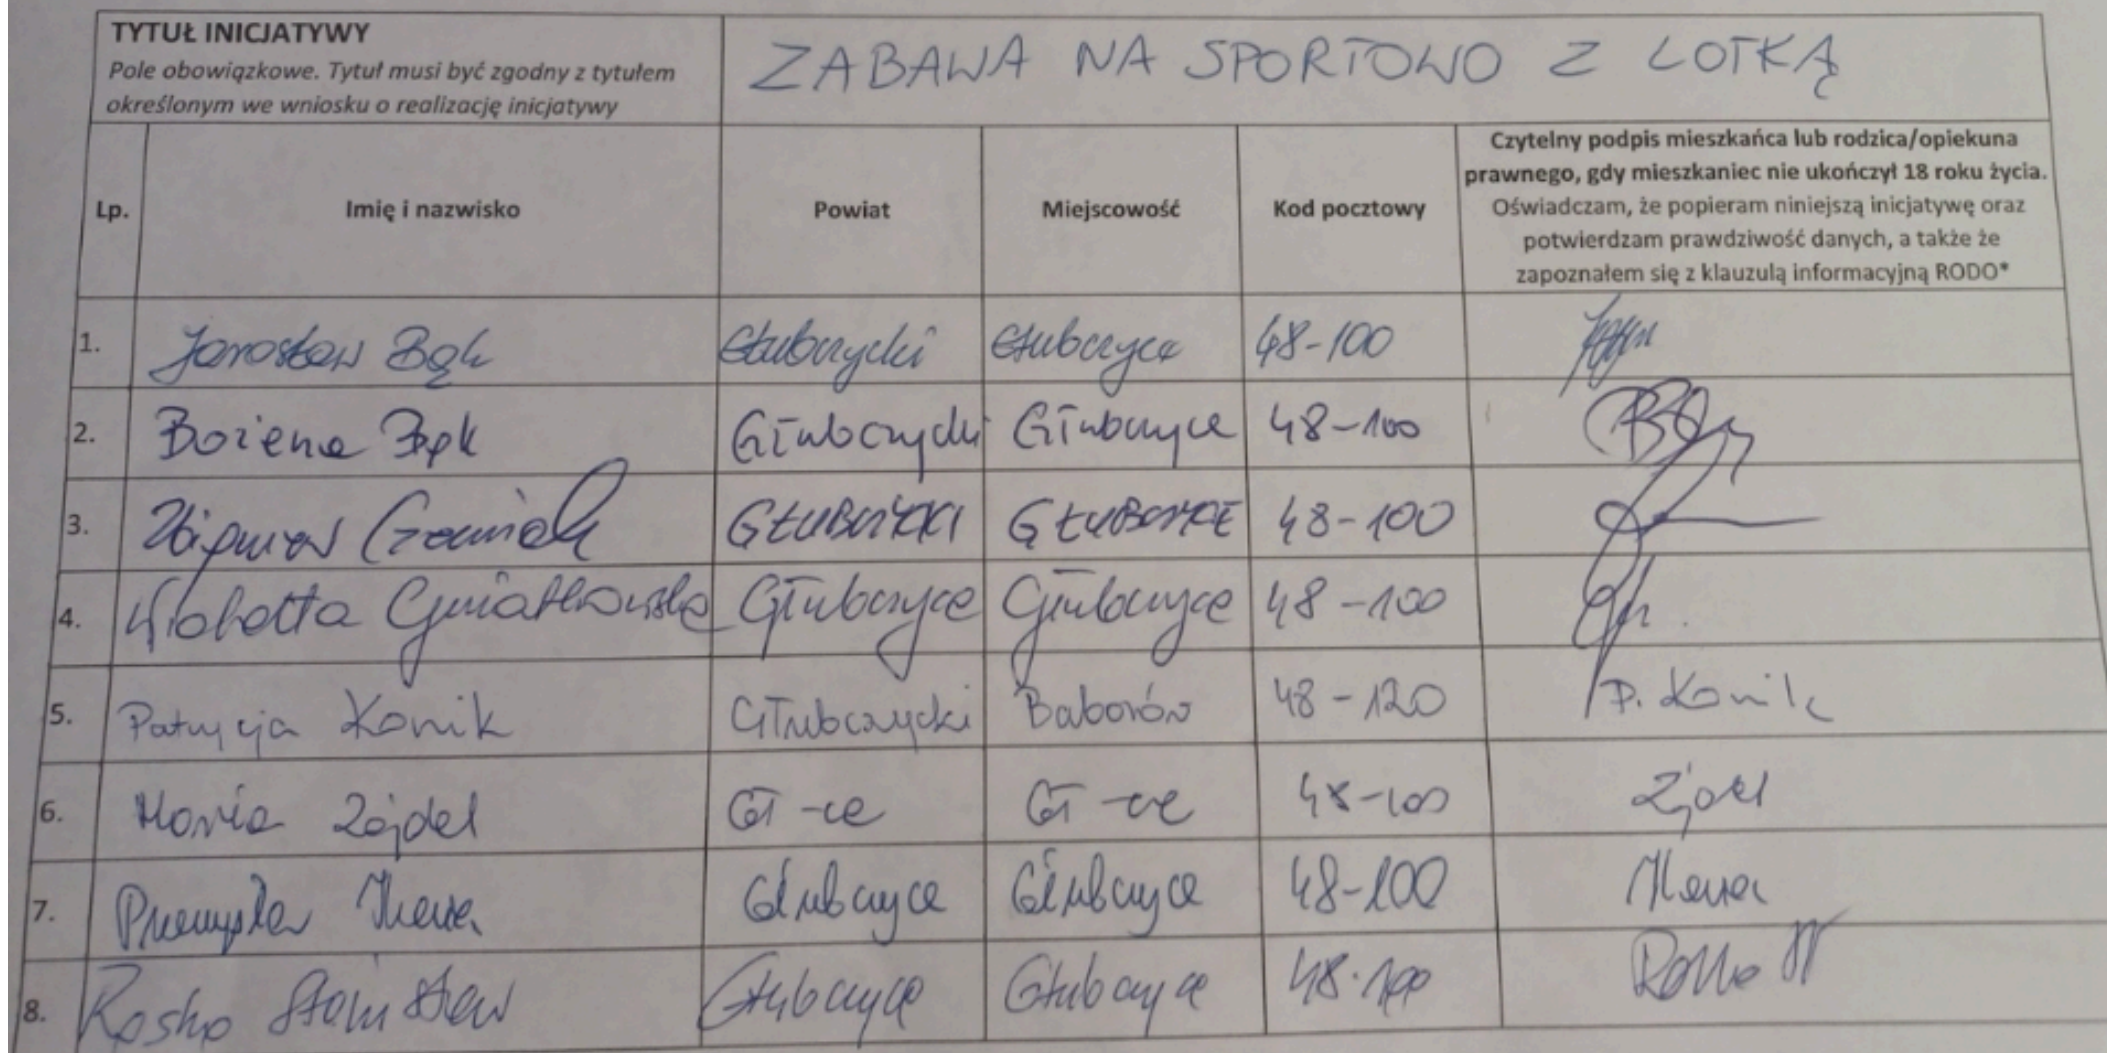 TYTUŁ INICJATYWY
Pole obowiązkowe. Tytuł musi być zgodny z tytułem
określonym we wniosku o realizację inicjatywy
ZABAWA NA SPORTOWO Z LOTKĄ
Lp.
Imię i nazwisko
Powiat
Miejscowość
Kod pocztowy
Czytelny podpis mieszkańca lub rodzica/opiekuna
prawnego, gdy mieszkaniec nie ukończył 18 roku życia.
Oświadczam, że popieram niniejszą inicjatywę oraz
potwierdzam prawdziwość danych, a także że
zapoznałem się z klauzulą informacyjną RODO*
1. Jarosław Bąk Głubczycki Głubczyce 48-100
2. Bożena Bąk Głubczycki Głubczyce 48-100
3. Zbigniew GŁUBCZYCKI GŁUBCZYCE 48-100
4. Wioletta Gwiatkowska Głubczyce Głubczyce 48-100
5. Patrycja Konik Głubczycki Baborów 48-120 P. Konik
6. Maria Zájdel Gł-ce Gł-ce 48-100
7. Przemysław Głubczyce Głubczyce 48-100
8. Rosko Stanisław Głubczyce Głubczyce 48-100